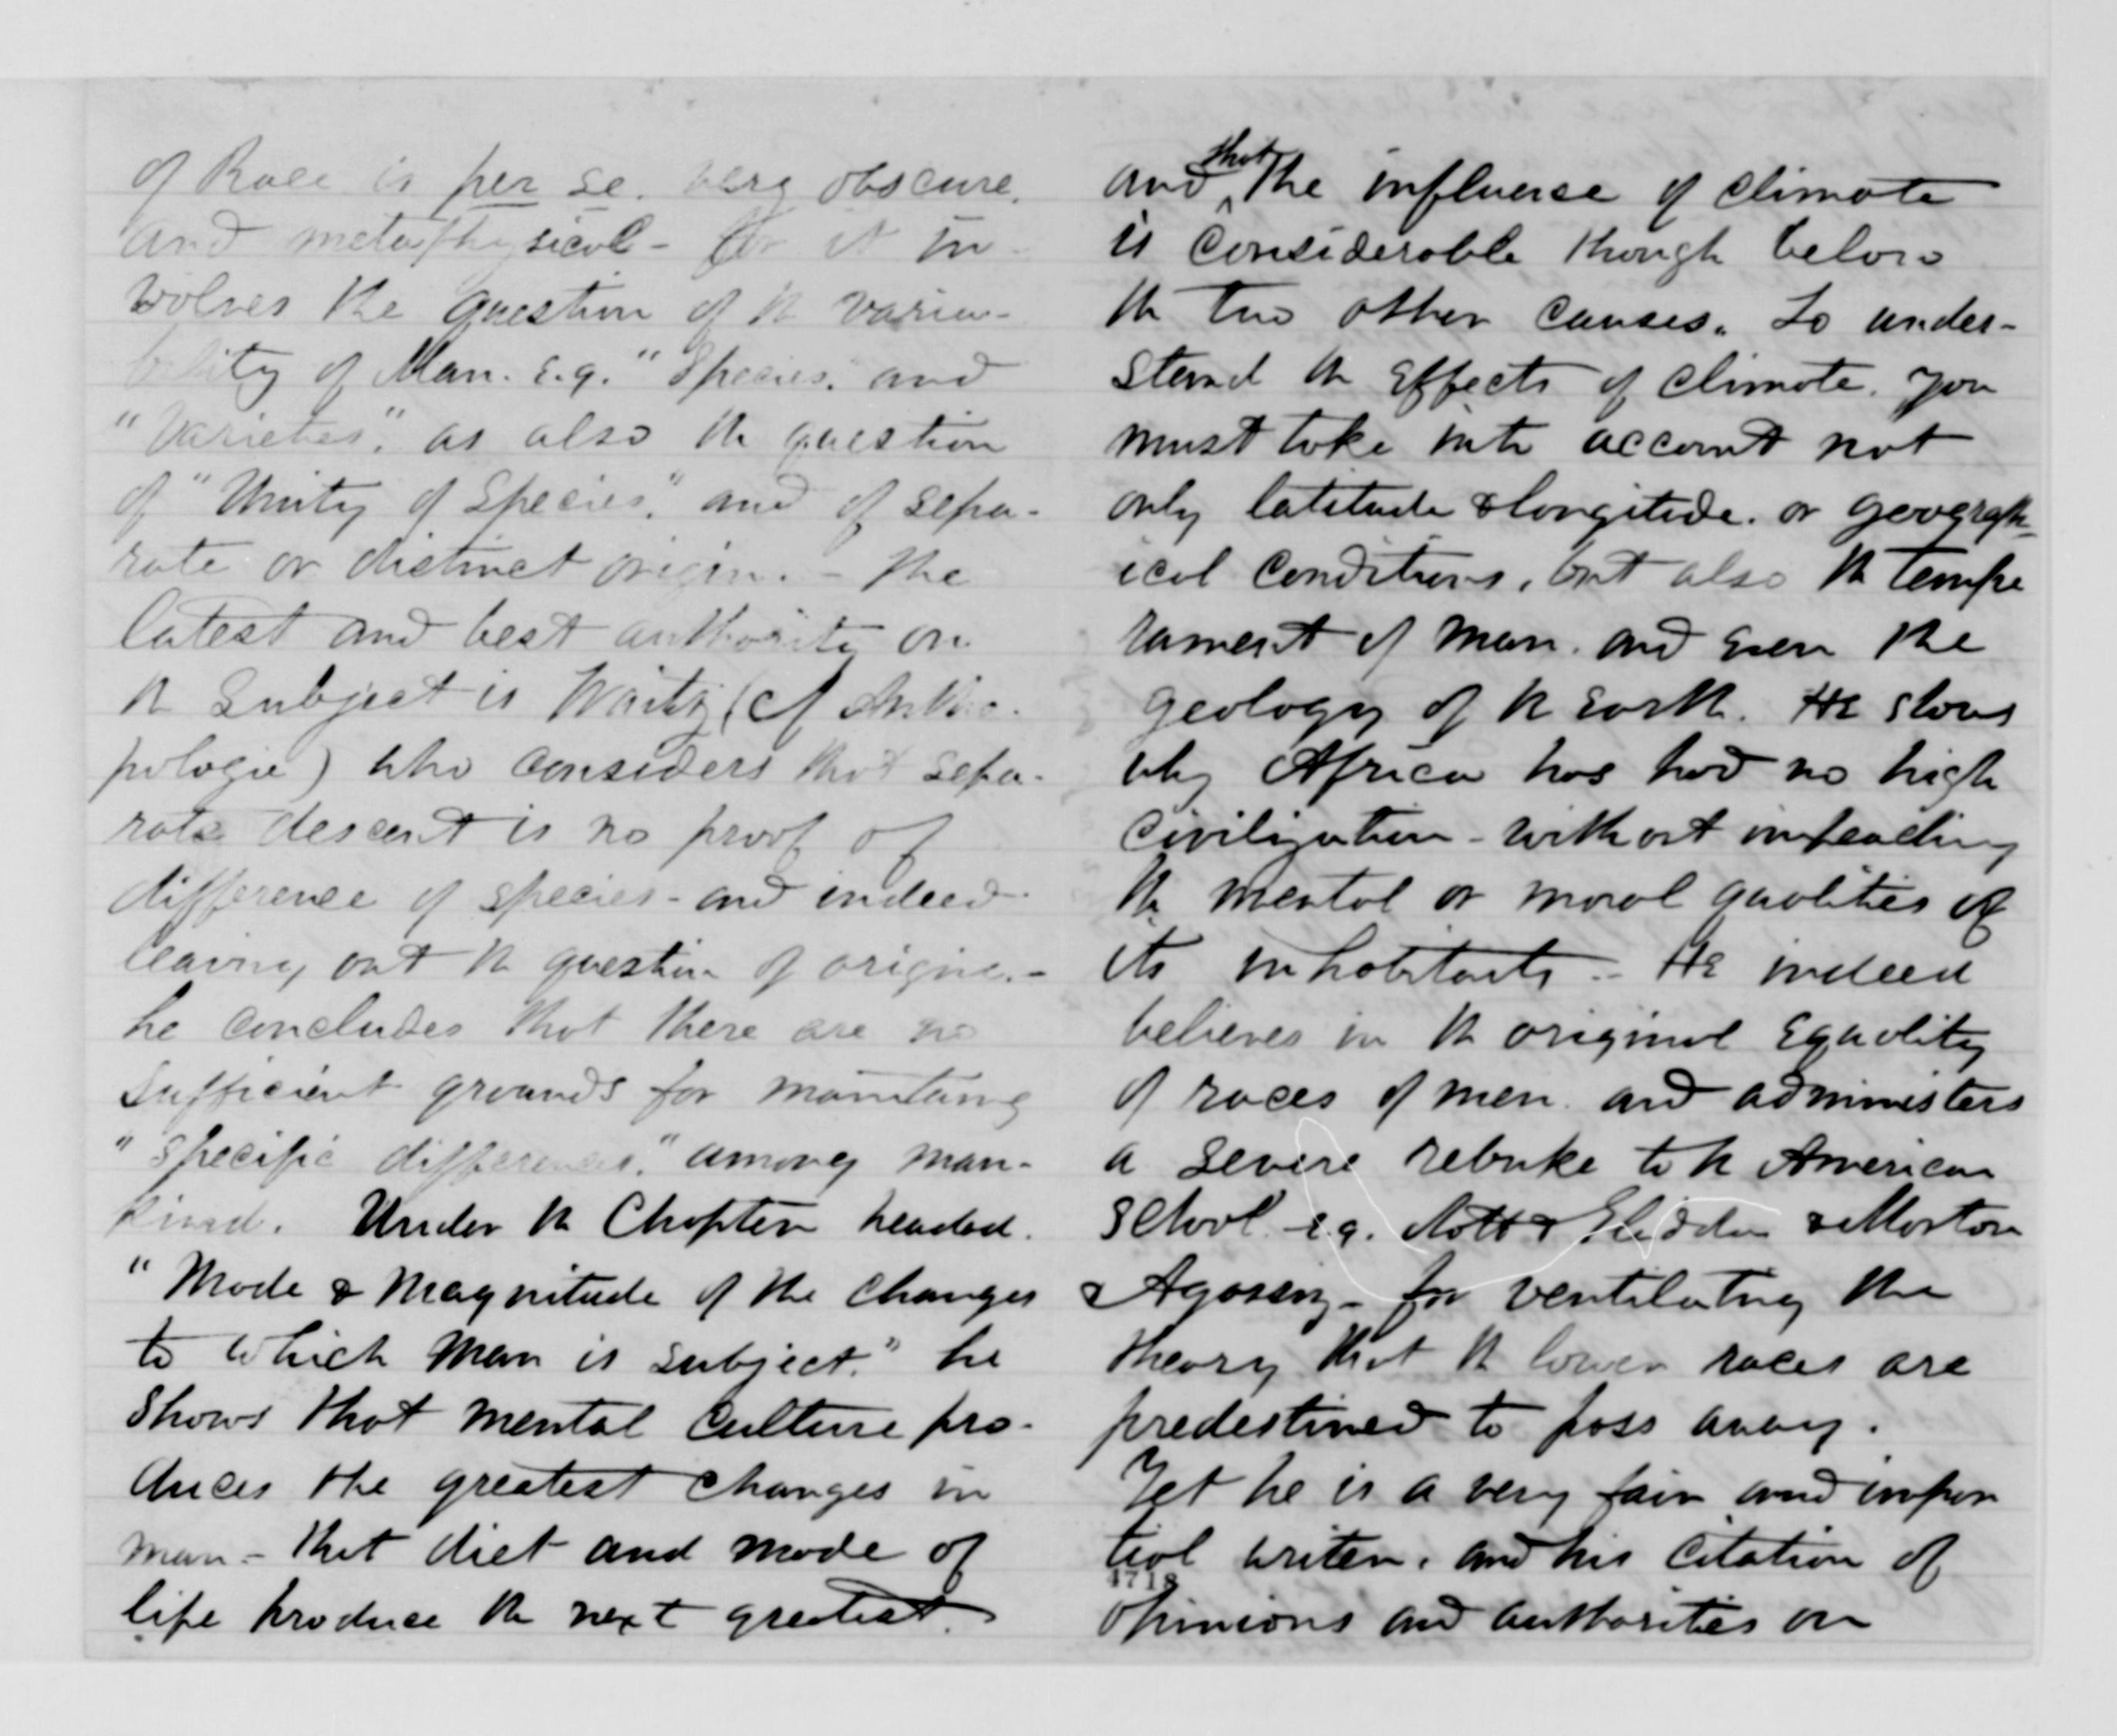 of Race is per se. very obscure.
and metaphysical - for it in-
volves the question of th varia-
bility of Man. E.g. "Species." and
"Varieties". as also th question
of "Unity of Species", and of sepa-
rate or distinct origin. - The
latest and best authority on
th subject is Waitz (cf Anthro-
pologie) who considers that sepa-
rate descent is no proof of
difference of species - and indeed
leaving out th question of origine. -
he concludes that there are no
sufficient grounds for maintaing
"specific differences," among man-
kind. Under th Chapter headed.
"Mode & Magnitude of the changes
to which Man is subject." he
shows that mental culture pro-
duces the greatest changes in
man - that diet and mode of
life produce th next greatest.
and that the influence of climate
is considerable though below
th two other causes. To under-
stand th effects of climate. you
must take into account not
only latitude & longitude. or geograph-
ical conditions, but also th tempe
rament of man. and even the
geology of th earth. He shows
why Africa has had no high
civilization - without impeaching
th mental or moral qualities of
its inhabitants - He indeed
believes in th original equality
of races of men. and administers
a severe rebuke to th American
school e.g. Nott & Gliddon & Morton
& Agassiz - for ventilating the
theory that th lower races are
predestined to pass away.
Yet he is a very fair and impar
tial writer. and his citation of
4718
opinions and authorities on